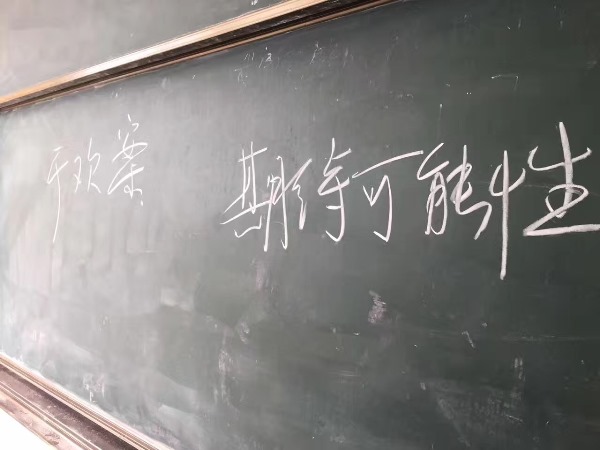 于欢案 期待可能性